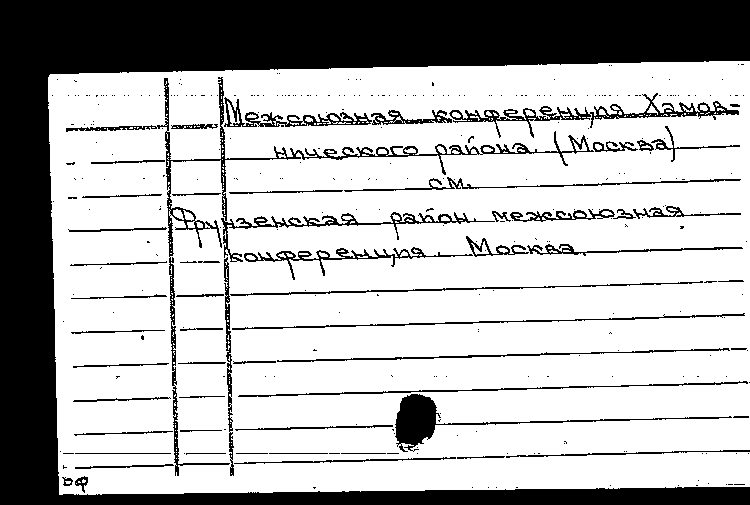 Межсоюзная конференция Хамов-
нического района. (Москва)
см.
Фрунзенская район. межсоюзная
конференция. Москва.
оф